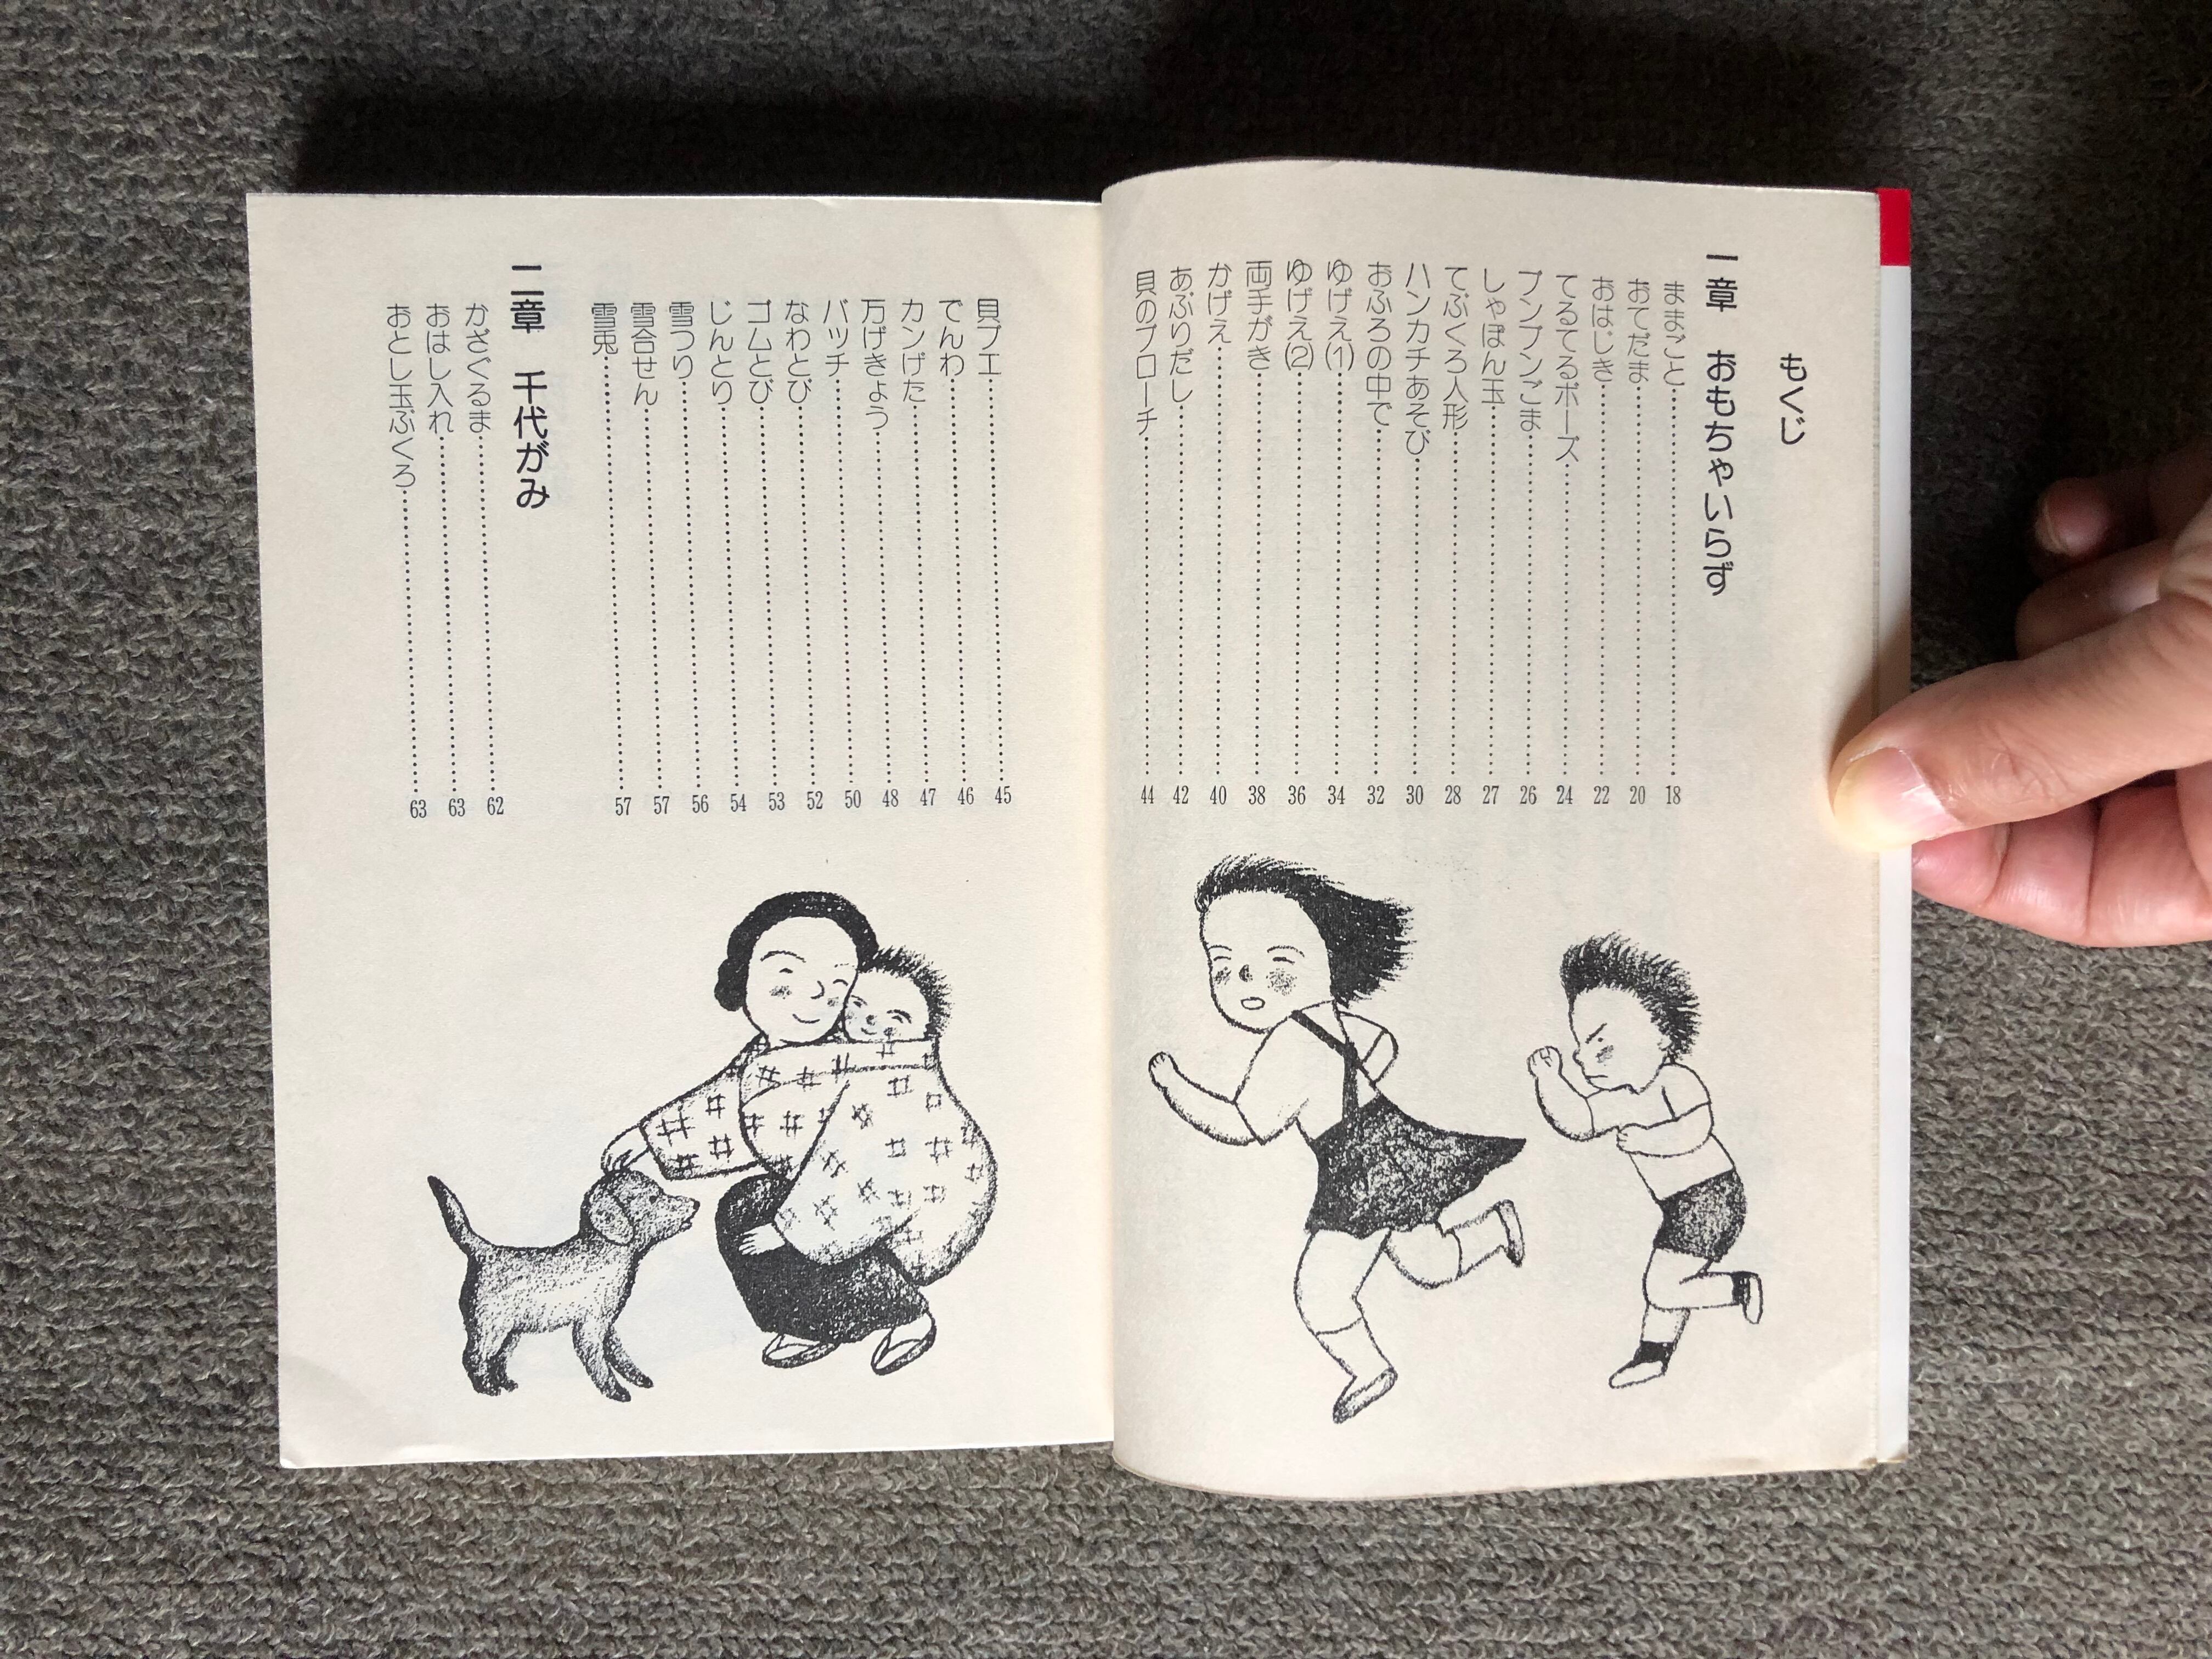 もくじ
一章 おもちゃいらず
ままごと…………18
おてだま…………20
おはじき…………22
てるてるボーズ…………24
ブンブンごま…………26
しゃぼん玉…………27
てぶくろ人形…………28
ハンカチあそび…………30
おふろの中で…………32
ゆげえ(1)…………34
ゆげえ(2)…………36
両手がき…………38
かげえ…………40
あぶりだし…………42
貝のブローチ…………44
貝ブエ…………45
でんわ…………46
カンげた…………47
万げきょう…………48
バッチ…………50
なわとび…………52
ゴムとび…………53
じんとり…………54
雪つり…………56
雪合せん…………57
雪兎…………57
二章 千代がみ
かざぐるま…………62
おはし入れ…………63
おとし玉ぶくろ…………63